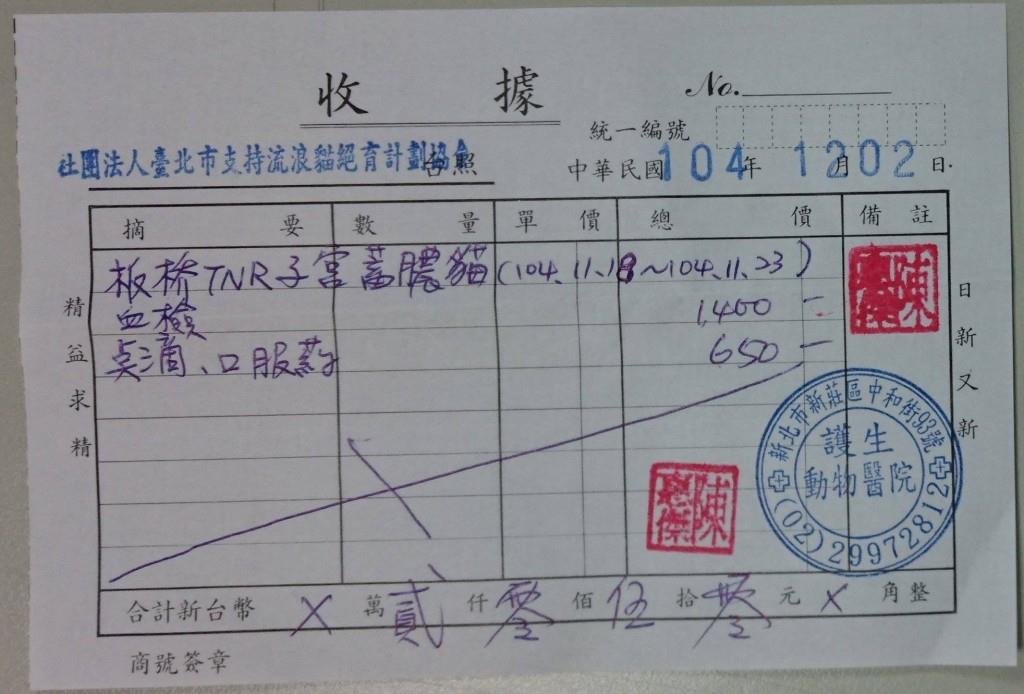 收據
No.
統一編號
社團法人臺北市支持流浪貓絕育計劃協會 台照
中華民國104年12月02日
摘要 數量 單價 總價 備註
板桥TNR子宮蓄膿貓(104.11.18~104.11.23)
血檢 1,400 -
点滴、口服药 650 -
精益求精
日新又新
陳
新北市新莊區中和街93號
護生
動物醫院
(02)29972812
陳
合計新台幣 X 萬 貳 仟 零 佰 伍 拾 零 元 X 角整
商號簽章